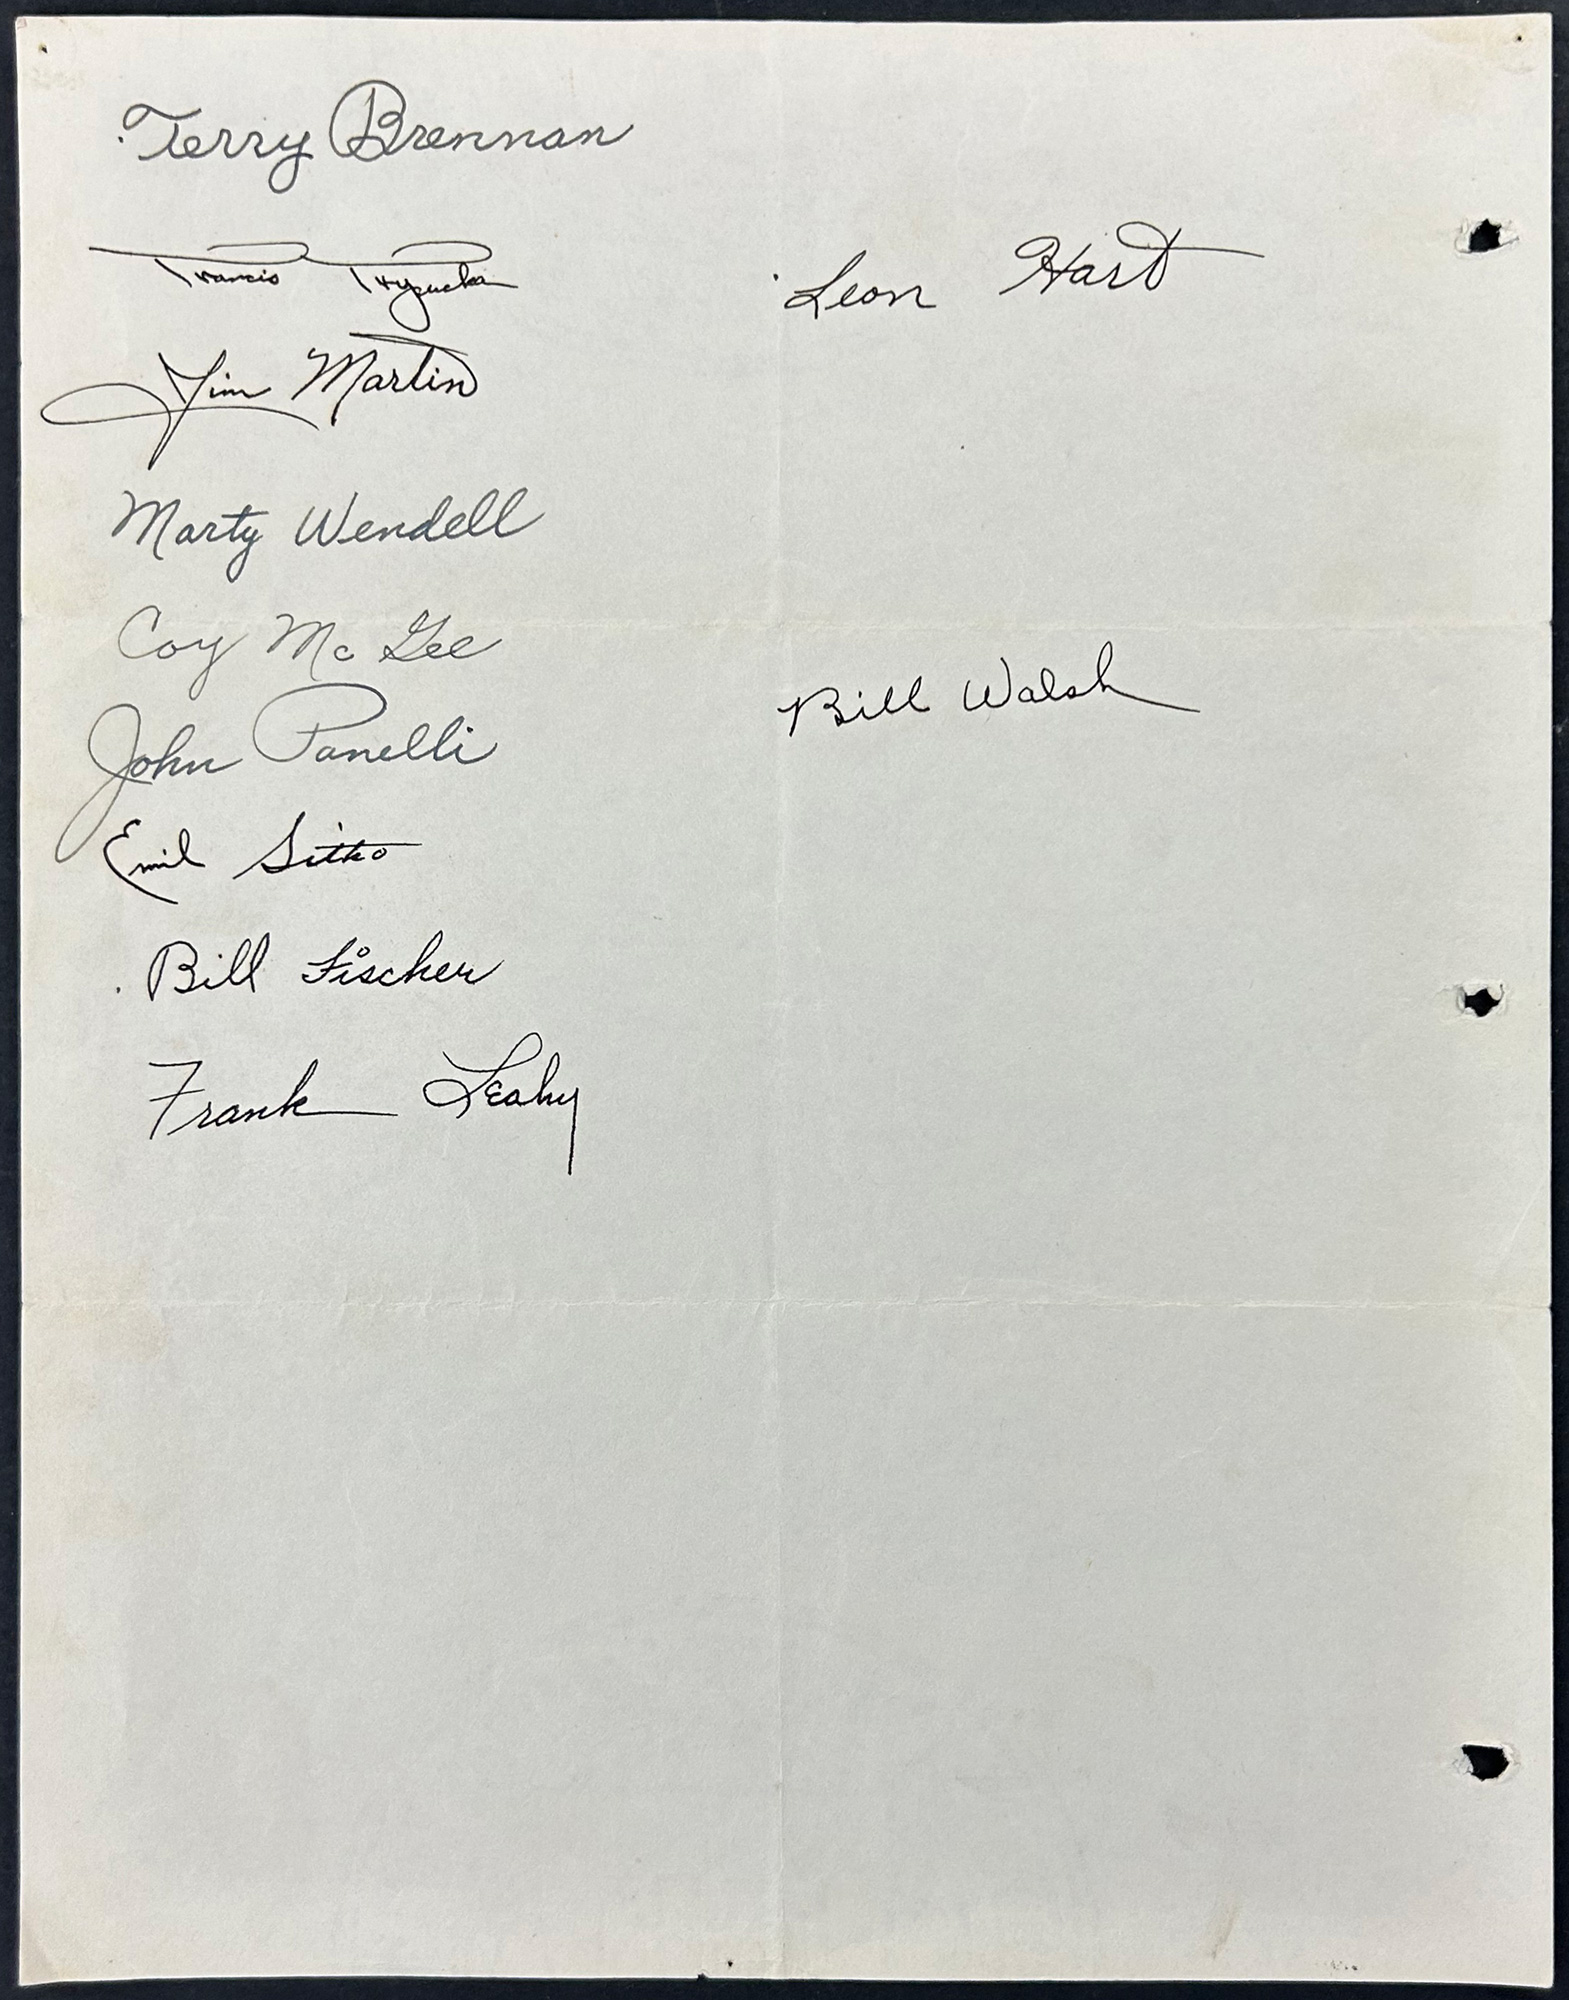 Terry Brennan
Francis Trypucka
Leon Hart
Jim Martin
Marty Wendell
Coy Mc Gee
Bill Walsh
John Panelli
Emil Sitko
Bill Fischer
Frank Leahy